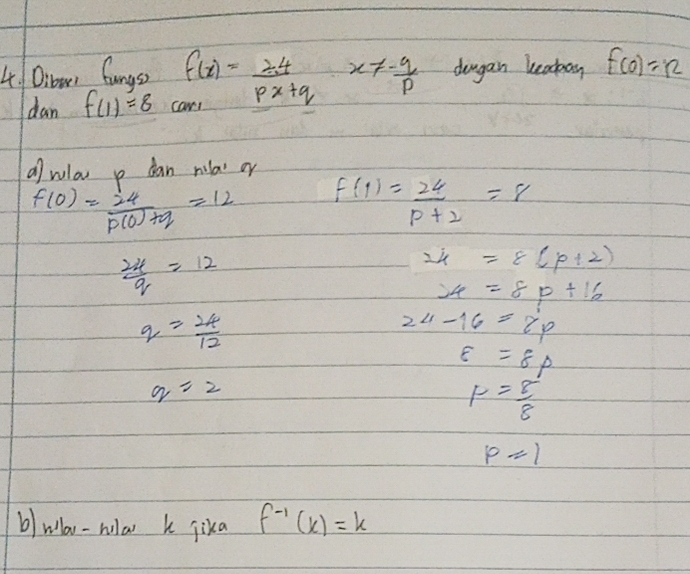 4. Diberi fungsi f(x) = 24/(px+q) x ≠ -q/p dengan keadaan f(0) = 12
dan f(1) = 8 cari
a) nilai p dan nilai q
f(0) = 24/(p(0)+q) = 12
24/q = 12
q = 24/12
q = 2
f(1) = 24/(p+2) = 8
24 = 8(p+2)
24 = 8p + 16
24-16 = 8p
8 = 8p
p = 8/8
p = 1
b) nilai-nilai k jika f⁻¹(k) = k